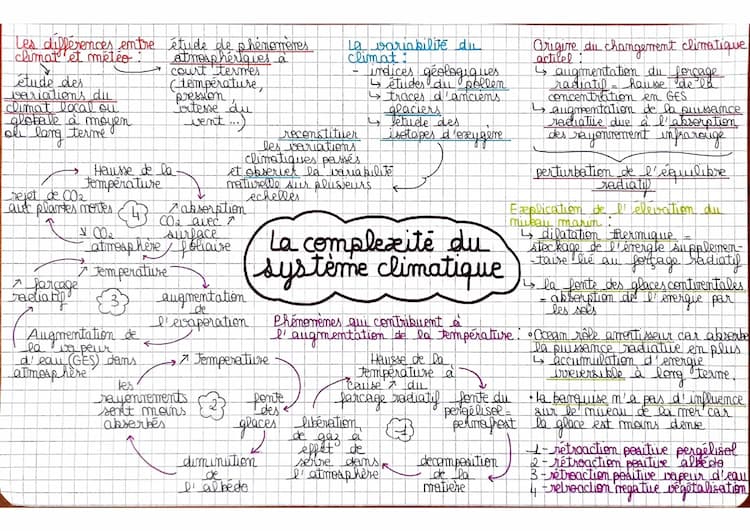 Les différences entre
climat et météo :
étude des
variations du
climat local ou
globale à moyen
où long terme
étude de phénomères
atmosphériques à
court termes
(température,
pression
vitesse du
vent ...)
La variabilité du
climat :
- indices géologiques
↳ études du pollen
↳ traces d'anciens
glaciers
↳ étude des
isotopes d'oxygène
reconstituer
les variations
climatiques passés
et observer la variabilité
naturelle sur plusieurs
echelles
Origine du changement climatique
actuel :
↳ augmentation du forçage
radiatif = hausse de la
concentration en GES
↳ augmentation de la puissance
radiative due à l'absorption
des rayonnement infrarouge
perturbation de l'équilibre
radiatif
La complexité du
système climatique
Hausse de la
température
↗ absorption
CO2 avec ↗
surface
foliaire
↘ CO2
atmosphère
rejet de CO2
aux plantes mortes
4
↗ Température
augmentation
de
l'évaporation
Augmentation de
la vapeur
d'eau (GES) dans
atmosphère
↗ forçage
radiatif
3
↗ Température
fonte
des
glaces
diminution
de
l'albédo
les
rayonnements
sont moins
absorbés
2
Phénomènes qui contribuent à
l'augmentation de la température :
Hausse de la
température à
cause ↗ du
forçage radiatif
fonte du
pergélisol =
permafrost
decomposition
de la
matière
libération
de gaz à
effet de
serre dans
l'atmosphère
1
Explication de l'élévation du
niveau marin :
↳ dilatation thermique =
stockage de l'énergie supplémen-
-taire lié au forçage radiatif
↳ la fonte des glaces continentales
= absorption de l'énergie par
les sols
• Océan rôle amortisseur car absorbe
la puissance radiative en plus
↳ accumulation d'énergie
irréversible à long terme.
• la banquise n'a pas d'influence
sur le niveau de la mer car
la glace est moins dense
1 - rétroaction positive pergélisol
2 - rétroaction positive albédo
3 - rétroaction positive vapeur d'eau
4 - rétroaction négative végétalisation